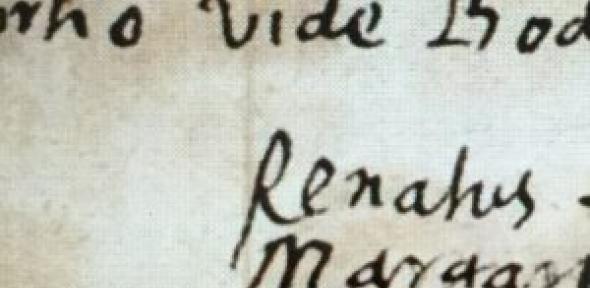 vide Bod
Renatus
Margar